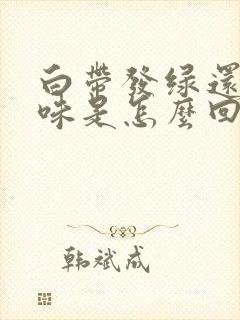 白带發绿還
味是怎麼回
韩斌成